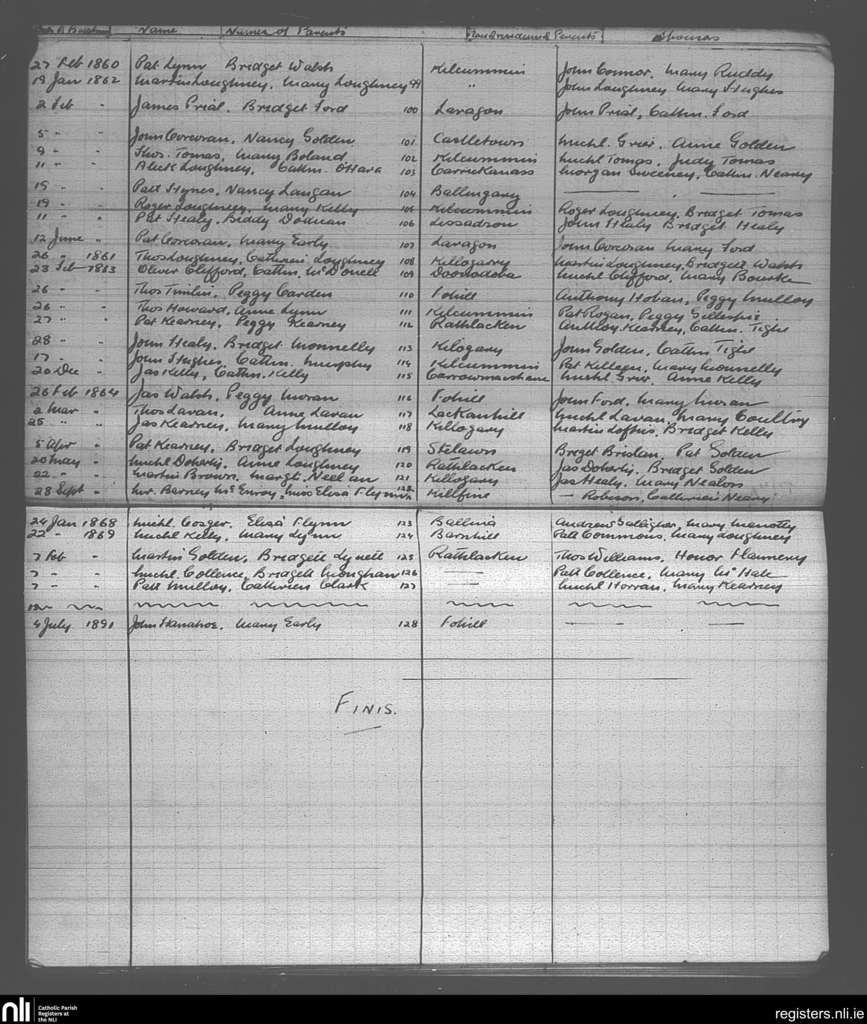 Name Names of Parents Residence of Parents Sponsors
27 Feb 1860 Pat Lynn Bridget Walsh Kilcummin John Connor, Mary Ruddy
19 Jan 1862 Martin Loughney, Mary Loughney 99 " John Loughney Mary Hughes
2 Feb " James Prial. Bridget Ford 100 Laragon John Prial, Cathn. Ford
5 " " John Corcoran, Nancy Golden 101 Castletown Michl. Grier, Anne Golden
9 " " Thos. Tomas, Mary Boland 102 Kilcummin Michl Tomas, Judy Tomas
11 " " Alick Loughney, Cathn. O'Hara 103 Carrickanass Morgan Sweeney, Cathn. Neary
15 " " Patt Hynes, Nancy Langan 104 Ballingary
19 " " Roger Loughney, Mary Kelly 105 Kilcummin Roger Loughney, Bridget Tomas
11 " " Pat Healy, Biddy 106 Lissadron John Healy Bridget Healy
12 June " Pat Corcoran, Mary Early 107 Laragon John Corcoran Mary Ford
26 " 1861 Thos Loughney, Catherine Loughney 108 Killogarry Martin Loughney, Bridgett Walsh
23 Feb 1863 Oliver Clifford, Cathn. McDonell 109 Michl Clifford, Mary Bourke
26 " " Thos Timlin, Peggy Carden 110 Fohill Anthony Hoban, Peggy Mulloy
26 " " Thos Howard, Anne Lynn 111 Kilcummin Pat Rogan, Peggy Gillespie
27 " " Pat Kearney, Peggy Kearney 112 Rathlacken Anthony Kearney, Cathn. Tighe
28 " " John Healy, Bridget Monnelly 113 Kilogary John Golden, Cathn Tighe
17 " " John Hughes, Cathn. Murphy 114 Kilcummin Pat Killeen, Mary Monnelly
20 Dec " Jas Kelly, Cathn. Kelly 115 Michl Grier, Anne Kelly
26 Feb 1864 Jas Walsh, Peggy Moran 116 Fohill John Ford, Mary Moran
2 Mar " Thos Lavan, Anne Lavan 117 Lackanhill Michl Lavan, Mary Coultry
25 " " Jas Kearney, Mary Mulloy 118 Killogary Martin Loftus, Bridget Kelly
5 Apr " Pat Kearney, Bridget Loughney 119 Skelawn Bridget Pat Golden
20 May " Michl Doherty, Anne Loughney 120 Rathlacken Jas Doherty, Bridget Golden
22 " " Martin Brown, Margt. Neelan 121 Killogary Jas Healy, Mary Nealon
28 Sept " Mr. Barney McEnroy, Miss Eliza Flynn 122 Killfine — Robinson, Catherine Neary
24 Jan 1868 Michl Cosger, Eliza Flynn 123 Ballina Andrew Gallagher, Mary
22 " 1869 Michl Kelly, Mary Lynn 124 Barnhill Patt Commons, Mary Loughney
7 Feb " Martin Golden, Bridgett Lynett 125 Rathlacken Thos Williams, Honor Flannery
7 " " Michl. Collence, Bridgett Monghan 126 Patt Collence, Mary McHale
7 " " Patt Mulloy, Cathrien Clark 127 Michl Horran, Mary Kearney
4 July 1891 John Hanahoe, Mary Early 128 Fohill
FINIS.
nli Catholic Parish
Registers at
the NLI
registers.nli.ie